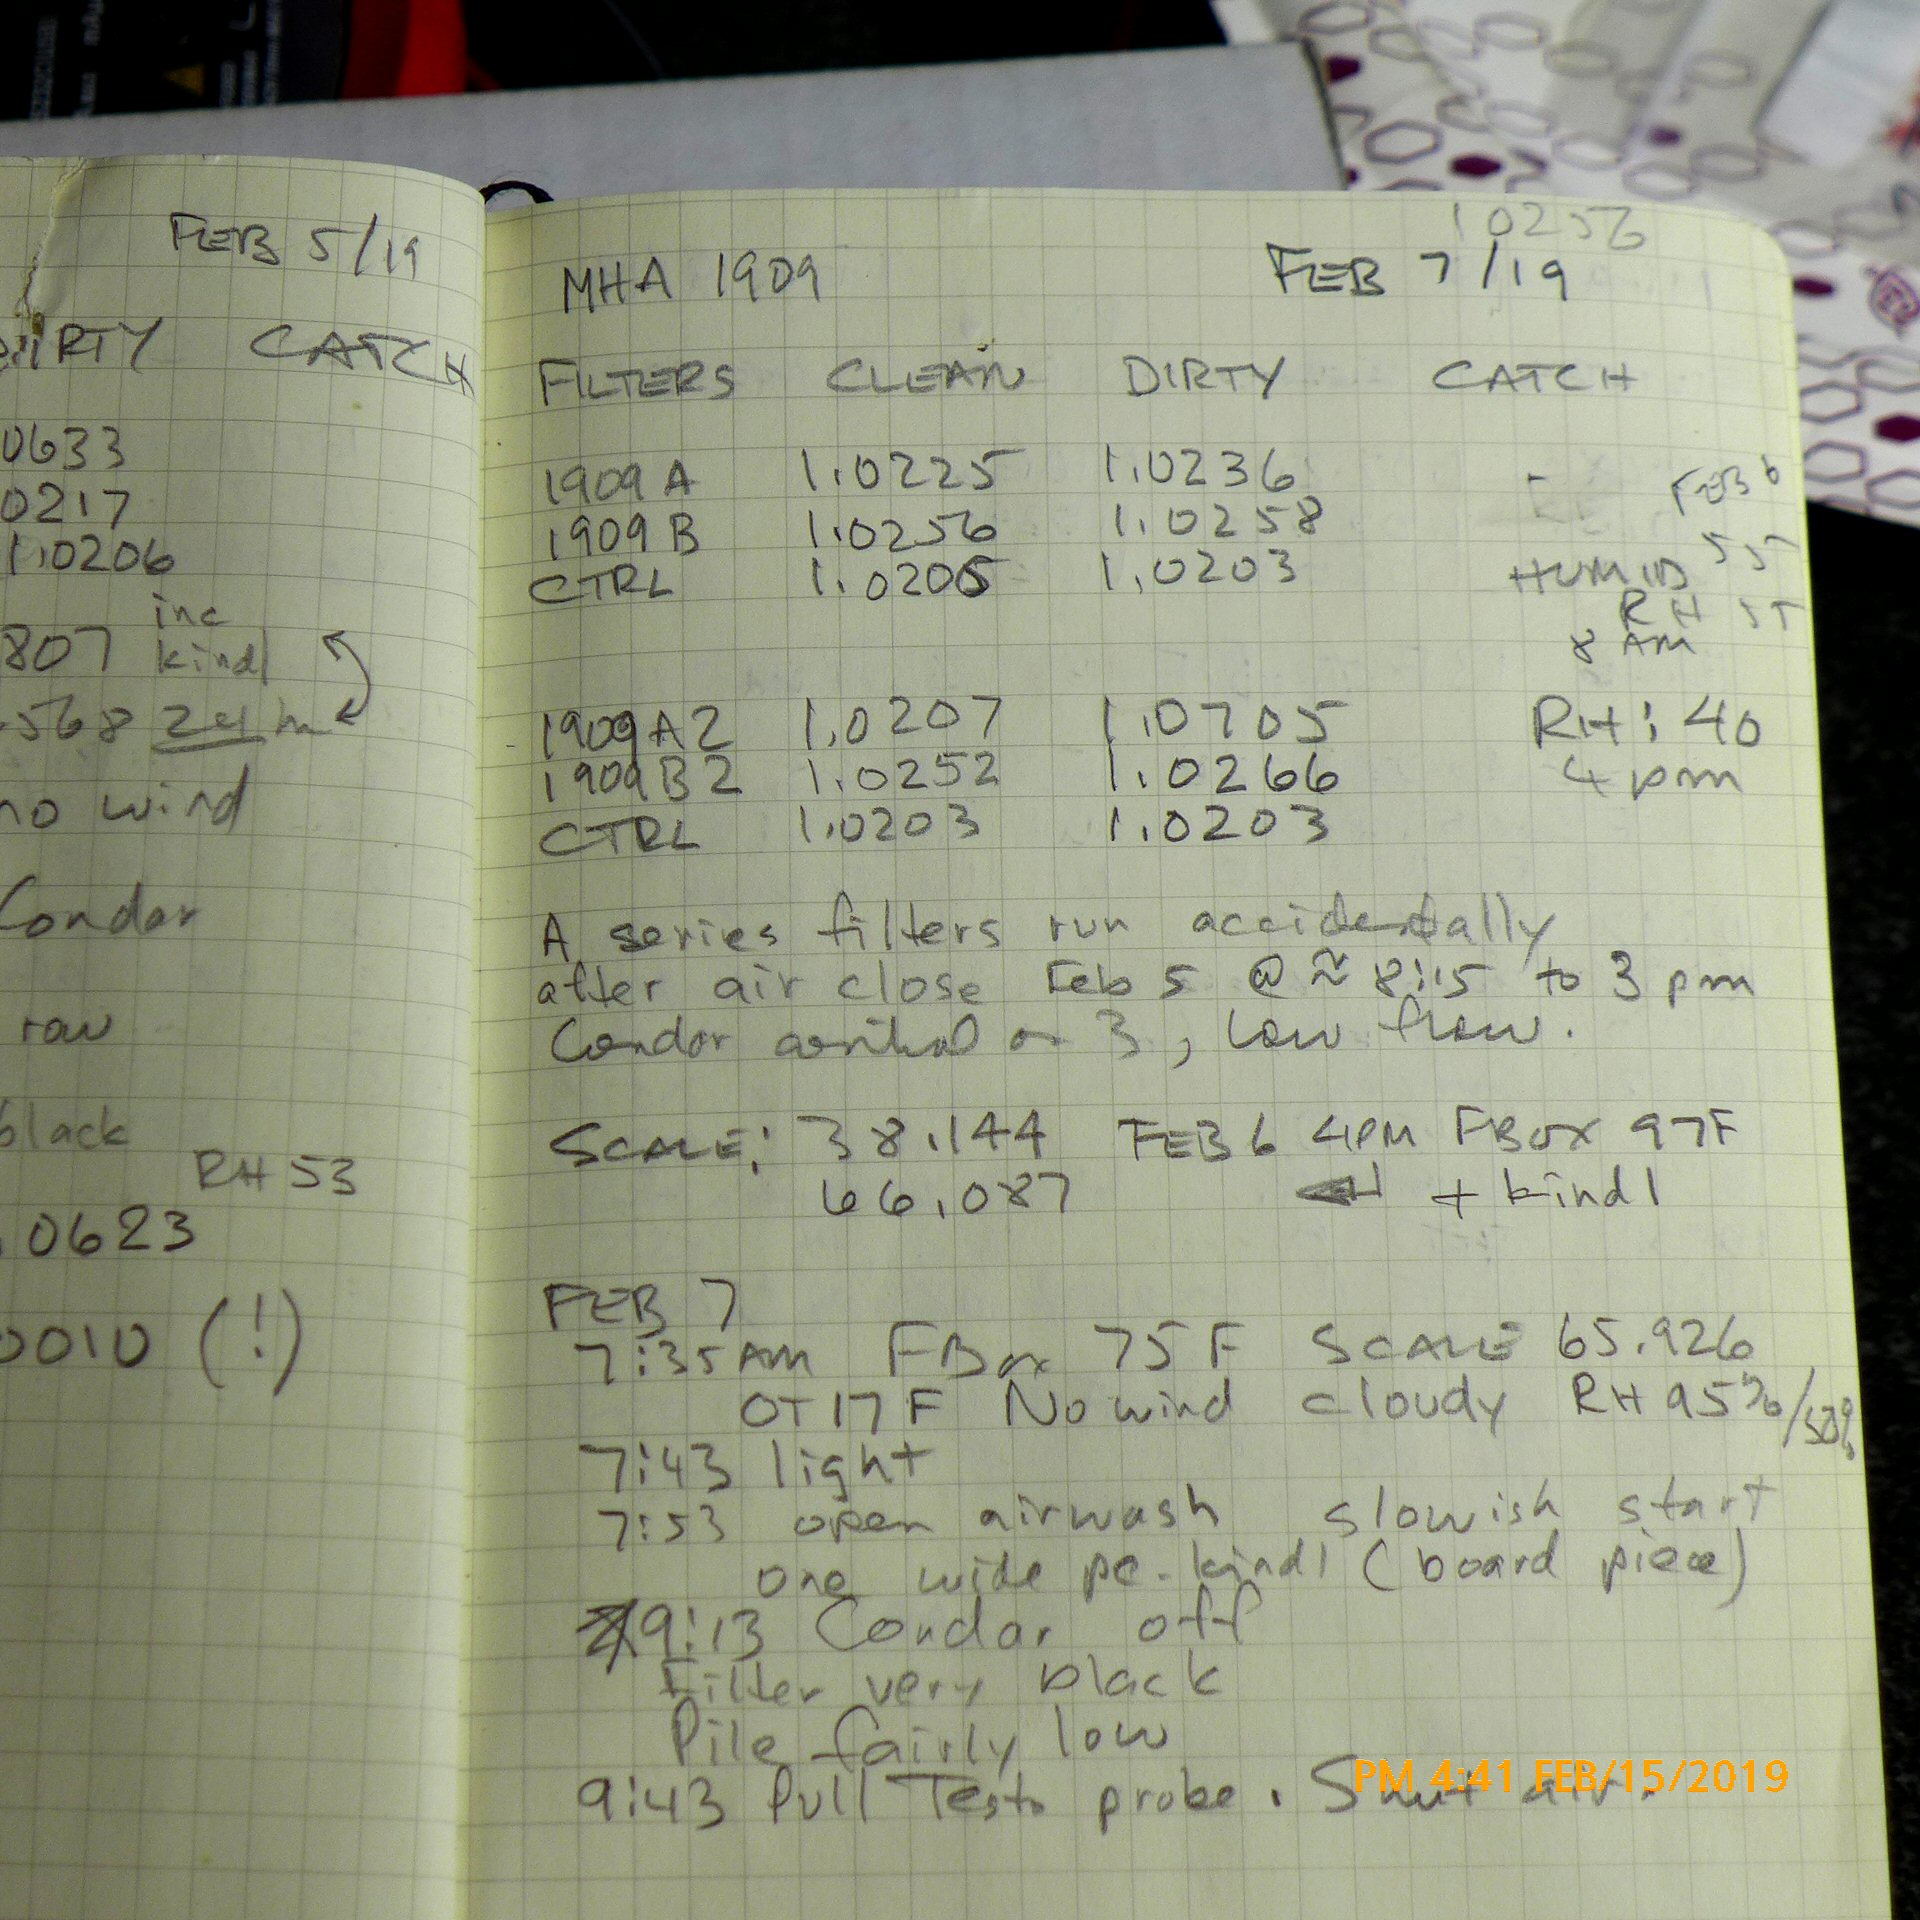 FEB 5/19
DIRTY CATCH
0633
0217
1.0206
inc
807 kindl
.568 24
no wind
Condar
raw
black
RH 53
.0623
0010 (!)
10256
MHA 1909 FEB 7/19
FILTERS CLEAN DIRTY CATCH
1909 A 1.0225 1.0236 -
FEB 6
1909 B 1.0256 1.0258
CTRL 1.0205 1.0203 HUMID
RH
8 AM
1909 A2 1.0207 1.0705 RH: 40
1909 B2 1.0252 1.0266 4 pm
CTRL 1.0203 1.0203
A series filters run accidentally
after air close Feb 5 @ ≈ 8:15 to 3 pm
Condar control on 3, low flow.
SCALE: 38.144 FEB 6 4PM FBOX 97F
66.087 + kindl
FEB 7
7:35 AM FBox 75 F SCALE 65.926
OT 17 F No wind cloudy RH 95%/50%
7:43 light
7:53 open airwash slowish start
one wide pc. kindl (board piece)
9:13 Condar off
Filter very black
Pile fairly low
9:43 Pull Testo probe. Shut air.
PM 4:41 FEB/15/2019